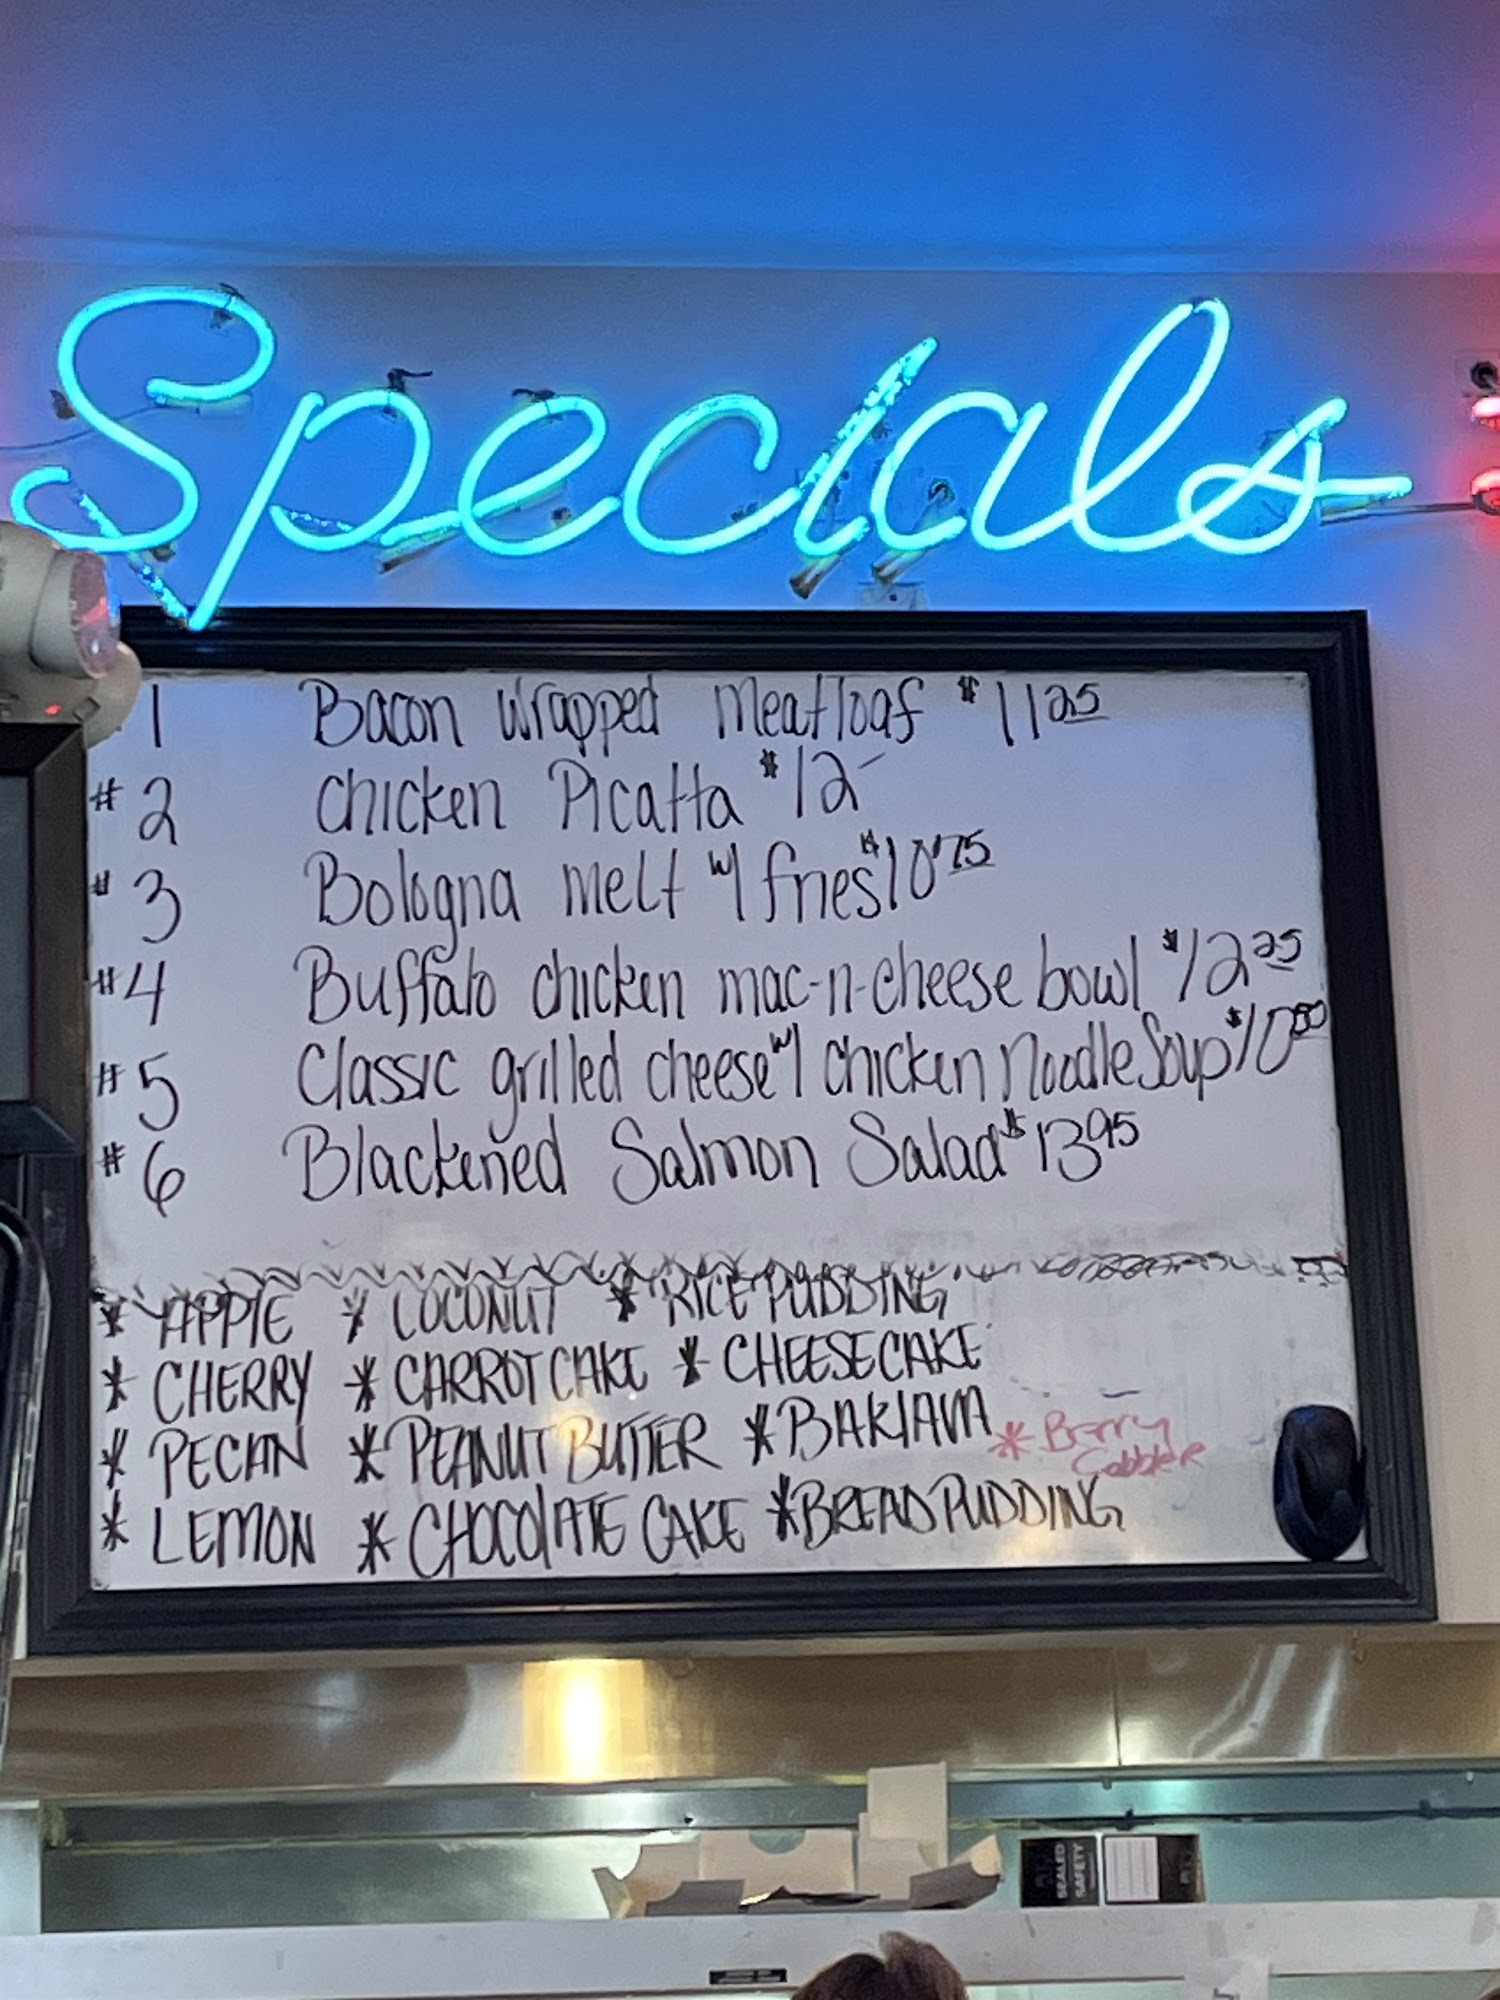 Specials
1 Bacon wrapped meatloaf $11 25
#2 chicken Picatta $12-
#3 Bologna melt w/ fries $10 75
#4 Buffalo chicken mac-n-cheese bowl $12 25
#5 Classic grilled cheese w/ chicken noodle Soup $10 50
#6 Blackened Salmon Salad $13 95
* APPLE * COCONUT * RICE PUDDING
* CHERRY * CARROT CAKE * CHEESECAKE
* PECAN * PEANUT BUTTER * BAKLAVA * Berry
Cobbler
* LEMON * CHOCOLATE CAKE * BREAD PUDDING
SEALED
SAFETY